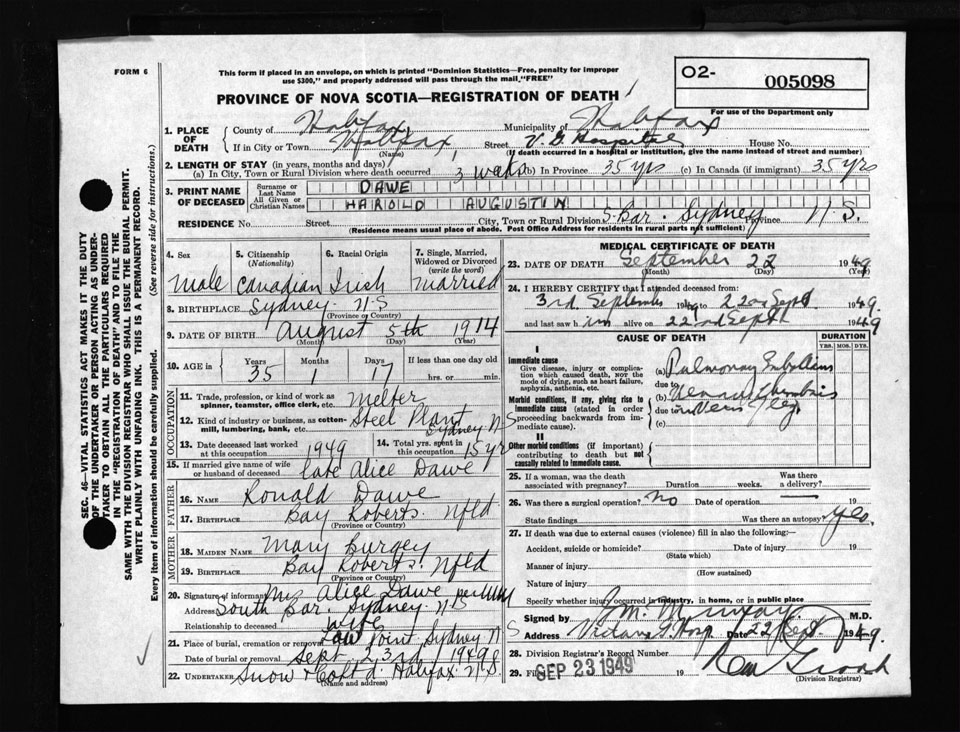 FORM 6
This form if placed in an envelope, on which is printed "Dominion Statistics—Free, penalty for improper
use $300," and properly addressed will pass through the mail "FREE"
O2-
005098
For use of the Department only
PROVINCE OF NOVA SCOTIA—REGISTRATION OF DEATH
1. PLACE OF DEATH
County of Halifax Municipality of Halifax
If in City or Town Halifax Street V. G. Hospital House No.
(Name) (If death occurred in a hospital or institution, give the name instead of street and number)
2. LENGTH OF STAY (in years, months and days)
(a) In City, Town or Rural Division where death occurred 3 weeks (b) In Province 35 yrs (c) In Canada (if immigrant) 35 yrs
3. PRINT NAME OF DECEASED
Surname or Last Name DAWE
All Given or Christian Names HAROLD AUGUSTIN
RESIDENCE No. Street City, Town or Rural Division S. Bar. Sydney Province N.S.
(Residence means usual place of abode. Post Office Address for residents in rural parts not sufficient)
4. Sex
5. Citizenship (Nationality)
6. Racial Origin
7. Single, Married, Widowed or Divorced (write the word)
Male Canadian Irish Married
8. BIRTHPLACE Sydney N.S
(Province or Country)
9. DATE OF BIRTH August 5th 1914
(Month) (Day) (Year)
10. AGE in Years Months Days If less than one day old
35 1 17 hrs. or min.
OCCUPATION
11. Trade, profession, or kind of work as spinner, teamster, office clerk, etc. Melter
12. Kind of industry or business, as cotton-mill, lumbering, bank, etc. Steel Plant Sydney N S
13. Date deceased last worked at this occupation 1949
14. Total yrs. spent in this occupation 15 yr
15. If married give name of wife or husband of deceased Alice Dawe
FATHER
16. Name Ronald Dawe
17. Birthplace Bay Roberts. Nfld
(Province or Country)
MOTHER
18. Maiden Name Mary Burgey
19. Birthplace Bay Roberts. Nfld
(Province or Country)
20. Signature of informant Mrs Alice Dawe per
Address South Bar. Sydney. N S
Relationship to deceased Wife
21. Place of burial, cremation or removal Low Point Sydney N S
Date of burial or removal Sept 23rd 1949
22. Undertaker Snow & Halifax N.S.
(Name and address)
MEDICAL CERTIFICATE OF DEATH
23. DATE OF DEATH September 22 1949
(Month) (Day) (Year)
24. I HEREBY CERTIFY that I attended deceased from:
3rd September 1949 to 22nd Sept 1949.
and last saw him alive on 22nd Sept 1949
CAUSE OF DEATH
DURATION
YRS. MOS. DYS.
I
Immediate cause
Give disease, injury or complication which caused death, not the mode of dying, such as heart failure, asphyxia, asthenia, etc.
(a) Pulmonary Embolism
due to
Morbid conditions, if any, giving rise to immediate cause (stated in order proceeding backwards from immediate cause).
(b) Venous thrombosis
due to
(c)
II
Other morbid conditions (if important) contributing to death but not causally related to immediate cause.
25. If a woman, was the death associated with pregnancy? Duration weeks. Was there a delivery?
26. Was there a surgical operation? No Date of operation 19
State findings Was there an autopsy? Yes.
27. If death was due to external causes (violence) fill in also the following:—
Accident, suicide or homicide? Date of injury 19
(State which)
Manner of injury
(How sustained)
Nature of injury
Specify whether injury occurred in industry, in home, or in public place
Signed by J.M. Murray M.D.
Address Victoria G. Hosp. Date 22 Sept 1949.
28. Division Registrar's Record Number
29. Filed SEP 23 1949 19
(Division Registrar)
SEC. 46—VITAL STATISTICS ACT MAKES IT THE DUTY
OF THE UNDERTAKER OR PERSON ACTING AS UNDER-
TAKER TO OBTAIN ALL THE PARTICULARS REQUIRED
IN THE "REGISTRATION OF DEATH" AND TO FILE THE
SAME WITH THE DIVISION REGISTRAR WHO SHALL ISSUE THE BURIAL PERMIT.
WRITE PLAINLY WITH UNFADING INK. THIS IS A PERMANENT RECORD.
Every item of information should be carefully supplied. (See reverse side for instructions.)